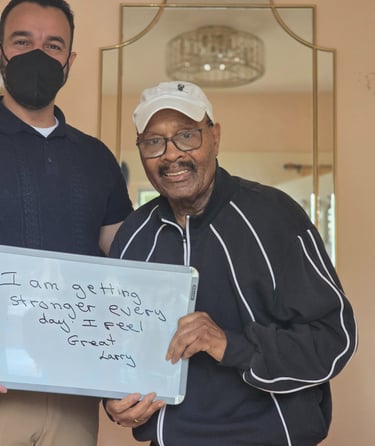 I am getting
stronger every
day! I feel
Great
Larry